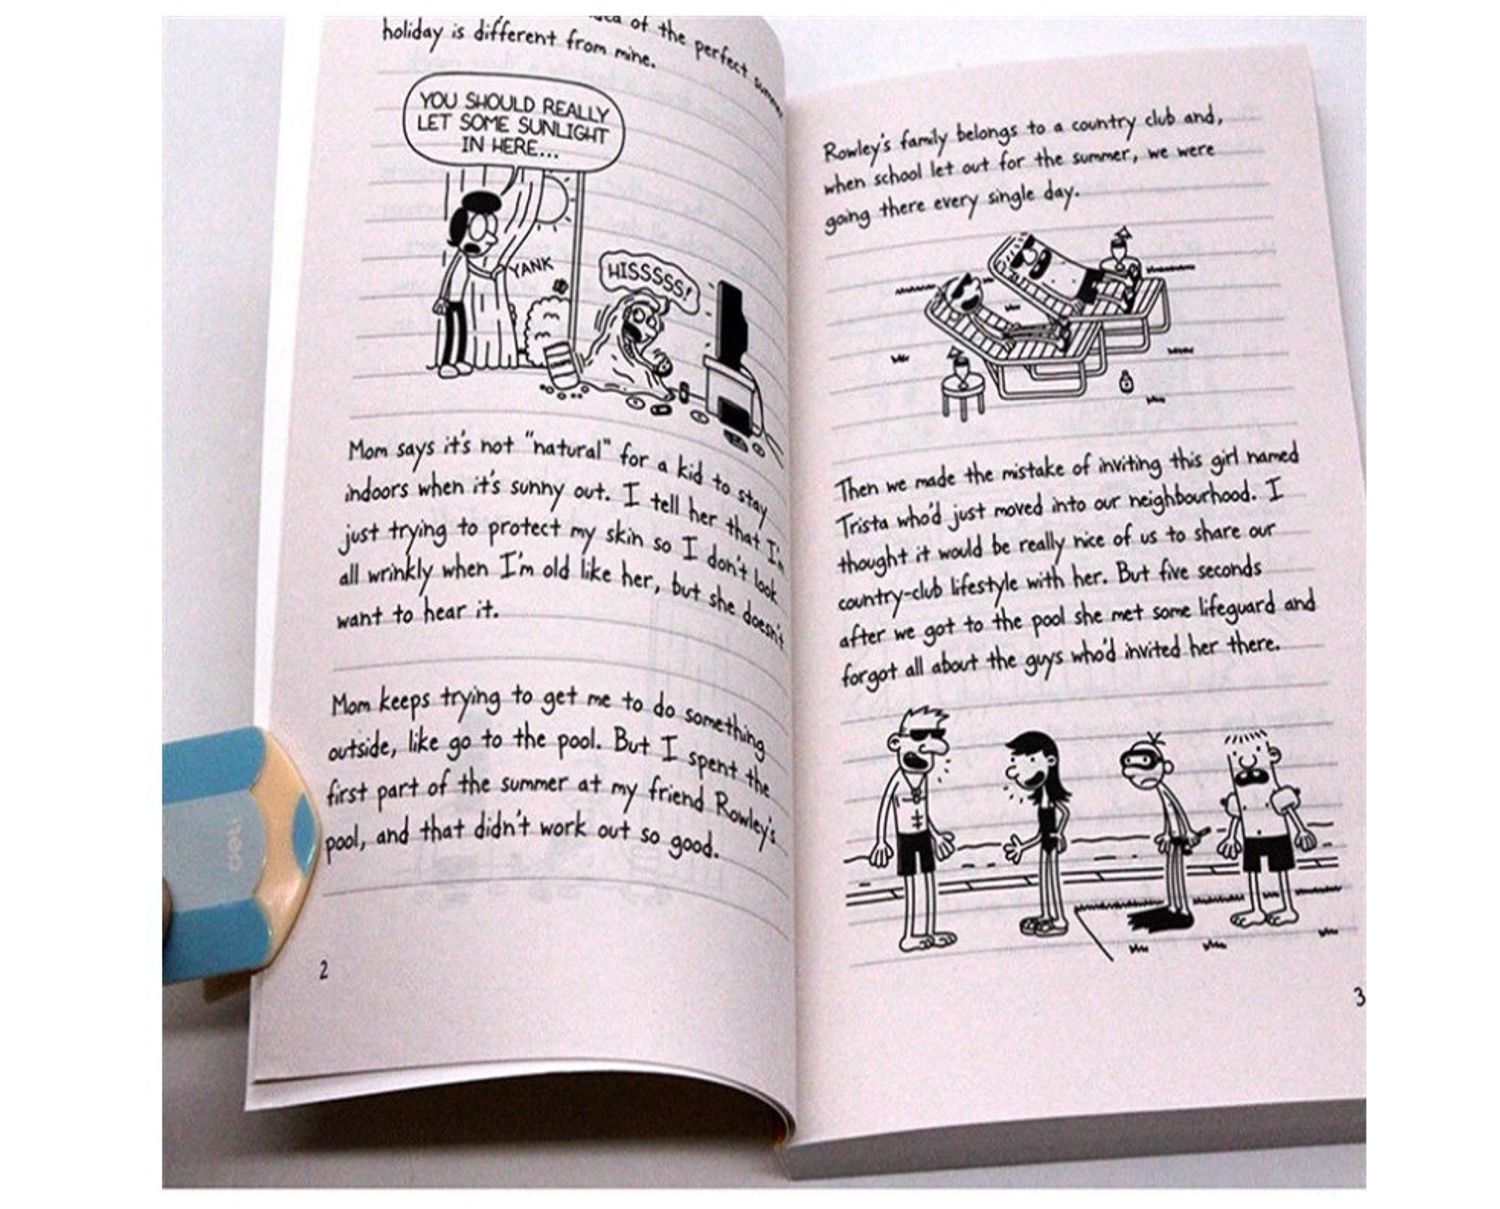 idea of the perfect summer
holiday is different from mine.
YOU SHOULD REALLY
LET SOME SUNLIGHT
IN HERE...
YANK
HISSSSS!
Mom says it's not "natural" for a kid to stay
indoors when it's sunny out. I tell her that I'm
just trying to protect my skin so I don't look
all wrinkly when I'm old like her, but she doesn't
want to hear it.
Mom keeps trying to get me to do something
outside, like go to the pool. But I spent the
first part of the summer at my friend Rowley's
pool, and that didn't work out so good.
deli
2
Rowley's family belongs to a country club and,
when school let out for the summer, we were
going there every single day.
Then we made the mistake of inviting this girl named
Trista who'd just moved into our neighbourhood. I
thought it would be really nice of us to share our
country-club lifestyle with her. But five seconds
after we got to the pool she met some lifeguard and
forgot all about the guys who'd invited her there.
3